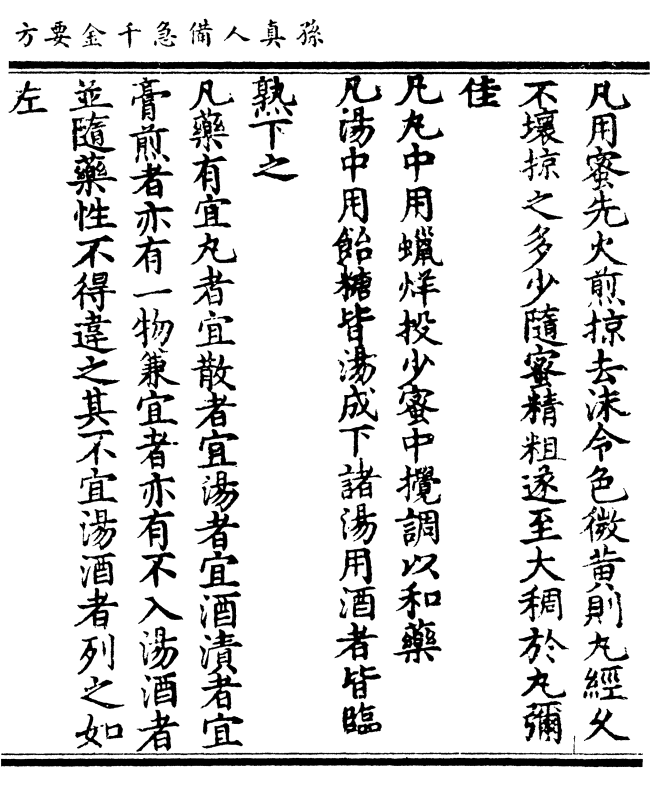 孫真人備急千金要方
凡用蜜先火煎掠去沫令色微黃則丸經久
不壞掠之多少隨蜜精粗遂至大稠於丸彌
佳
凡丸中用蠟烊投少蜜中攪調以和藥
凡湯中用飴糖皆湯成下諸湯用酒者皆臨
熟下之
凡藥有宜丸者宜散者宜湯者宜酒漬者宜
膏煎者亦有一物兼宜者亦有不入湯酒者
並隨藥性不得違之其不宜湯酒者列之如
左